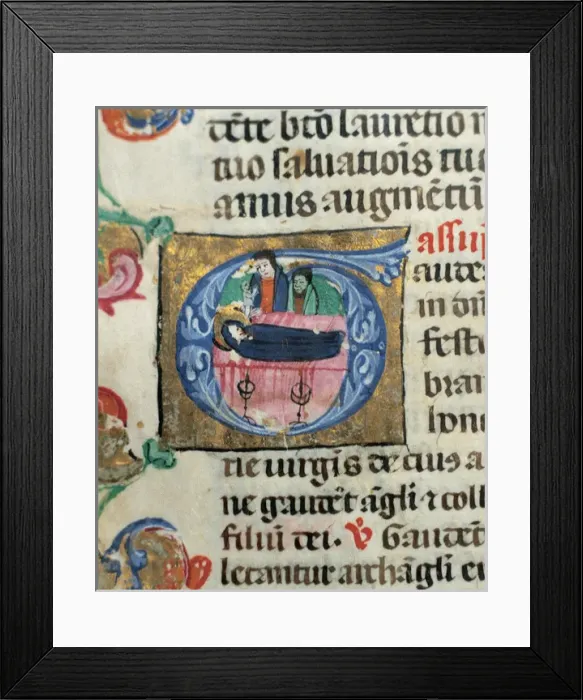 cēte btō laurētio
tuo saluatiōis tue
amus augmētū
assū
audes
in dn̄
festū
bran
hone
rie uirgīs de cius a
ne gaudēt āgli ⁊ coll
filiū dei. ℣ Gaudēt
letantur archāgli